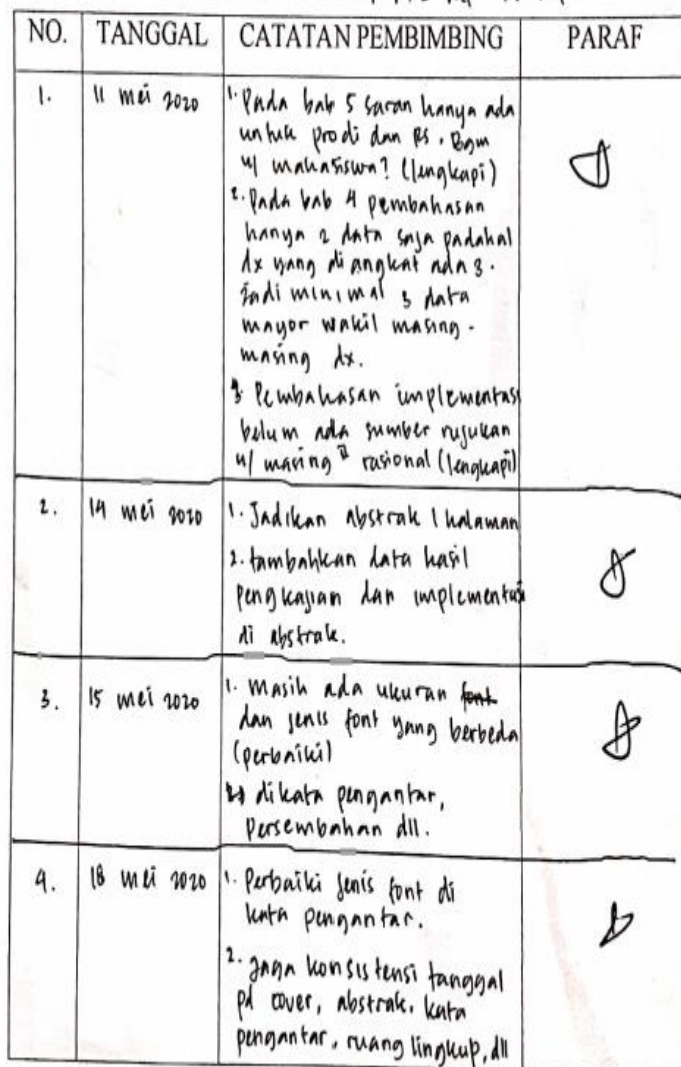 NO. TANGGAL CATATAN PEMBIMBING PARAF
1. 11 mei 2020 1. Pada bab 5 saran hanya ada
untuk prodi dan RS. Bgm
u/ mahasiswa? (lengkapi)
2. Pada bab 4 pembahasan
hanya 2 data saja padahal
dx yang diangkat ada 3.
Jadi minimal 3 data
mayor wakil masing-
masing dx.
3. Pembahasan implementasi
belum ada sumber rujukan
u/ masing" rasional (lengkapi)
2. 14 mei 2020 1. Jadikan abstrak 1 halaman
2. tambahkan data hasil
pengkajian dan implementasi
di abstrak.
3. 15 mei 2020 1. Masih ada ukuran font
dan jenis font yang berbeda
(perbaiki)
di kata pengantar,
Persembahan dll.
4. 18 mei 2020 1. Perbaiki jenis font di
kata pengantar.
2. Jaga konsistensi tanggal
pd cover, abstrak, kata
pengantar, ruang lingkup, dll